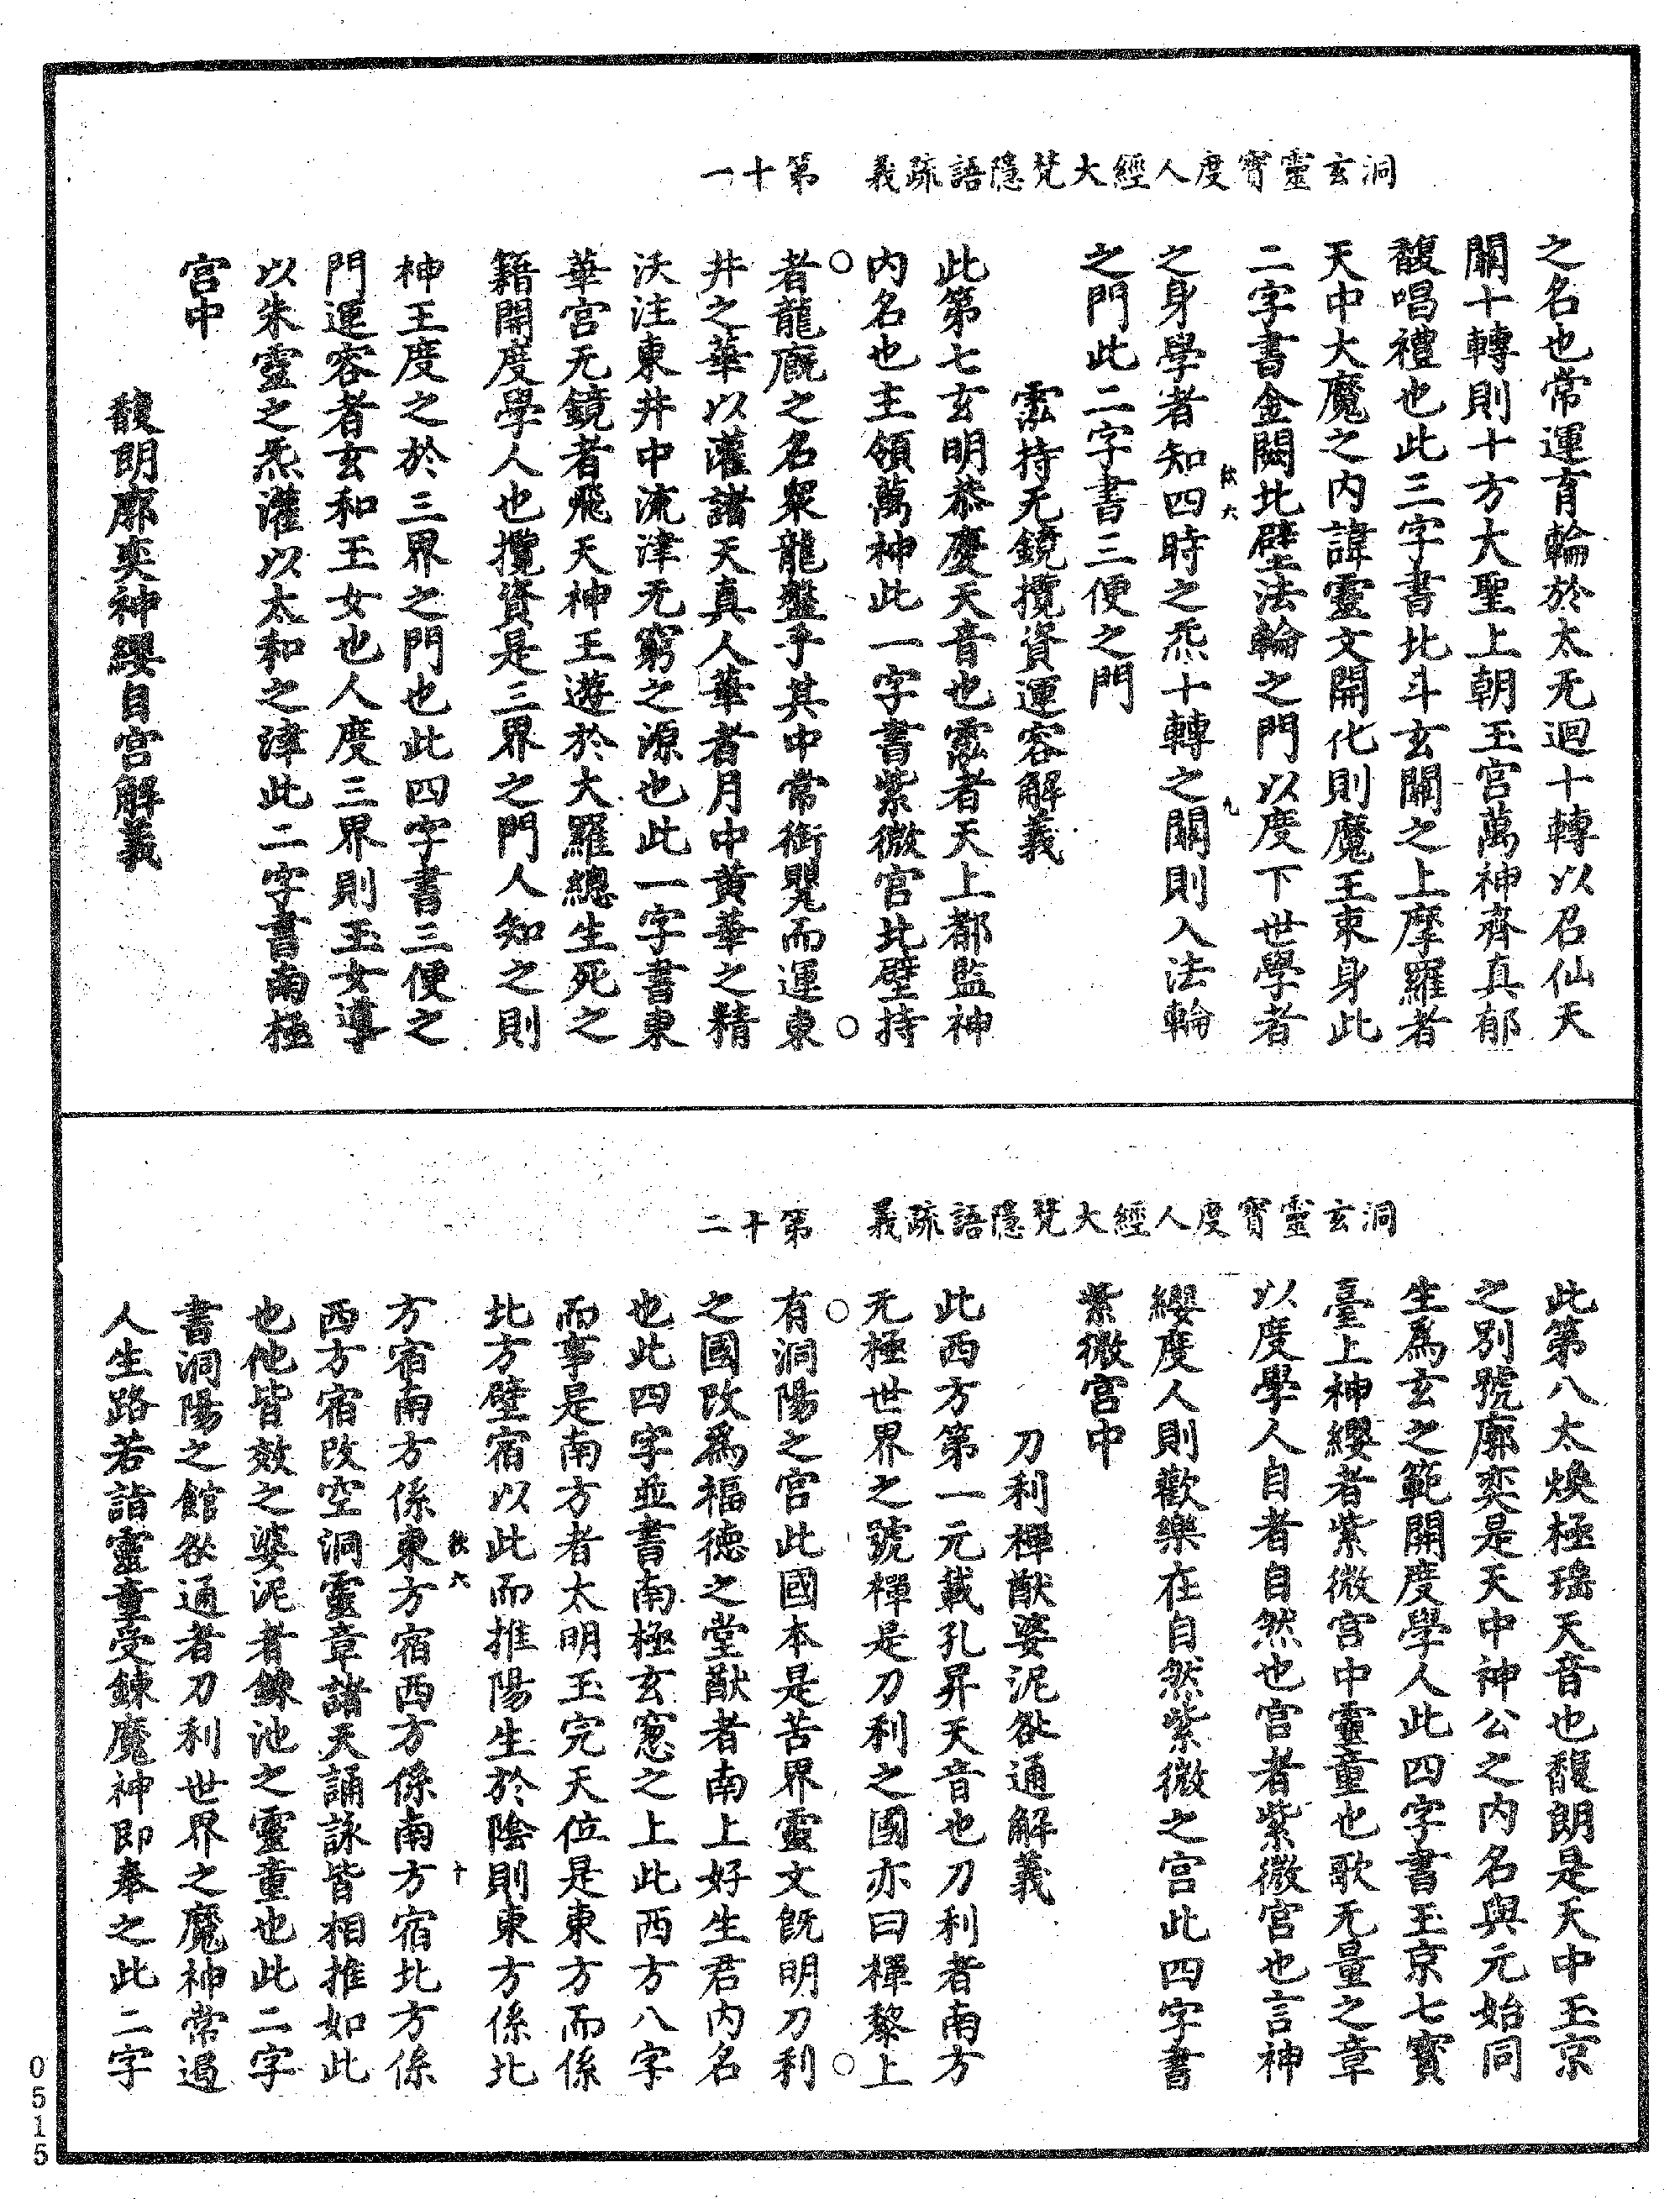 洞玄靈寶度人經大梵隱語疏義　第十一
之名也常運育輪於太无迴十轉以召仙天
關十轉則十方大聖上朝玉宮萬神齊真郁
馥唱禮也此三字書北斗玄關之上摩羅者
天中大魔之內諱靈文開化則魔王束身此
二字書金闕北壁法輪之門以度下世學者
之身學者知四時之炁十轉之關則入法輪
之門此二字書三便之門
霐持无鏡攬資運容解義
此第七玄明恭慶天音也霐者天上都監神
內名也主領萬神此一字書紫微宮北壁持
者龍廐之名眾龍盤乎其中常銜甖而運東
井之華以灌諸天真人華者月中黃華之精
沃注東井中流津无窮之源也此一字書東
華宮无鏡者飛天神王遊於大羅總生死之
籍開度學人也攬資是三界之門人知之則
神王度之於三界之門也此四字書三便之
門運容者玄和玉女也人度三界則玉女導
以朱靈之炁灌以太和之津此二字書南極
宮中
馥朗廓奕神纓自宮解義
洞玄靈寶度人經大梵隱語疏義　第十二
此第八太煥極瑤天音也馥朗是天中玉京
之別號廓奕是天中神公之內名與元始同
生為玄之範開度學人此四字書玉京七寶
臺上神纓者紫微宮中靈童也歌无量之章
以度學人自者自然也宮者紫微宮也言神
纓度人則歡樂在自然紫微之宮此四字書
紫微宮中
刀利禪猷婆泥咎通解義
此西方第一元載孔昇天音也刀利者南方
无極世界之號禪是刀利之國亦曰禪黎上
有洞陽之宮此國本是苦界靈文既明刀利
之國改為福德之堂猷者南上好生君內名
也此四字並書南極玄窓之上此西方八字
而事是南方者太明玉完天位是東方而係
北方壁宿以此而推陽生於陰則東方係北
方宿南方係東方宿西方係南方宿北方係
西方宿改空洞靈章諸天誦詠皆相推如此
也他皆效之婆泥者鍊池之靈童也此二字
書洞陽之館咎通者刀利世界之魔神常遏
人生路若詣靈童受鍊魔神即奉之此二字
0515